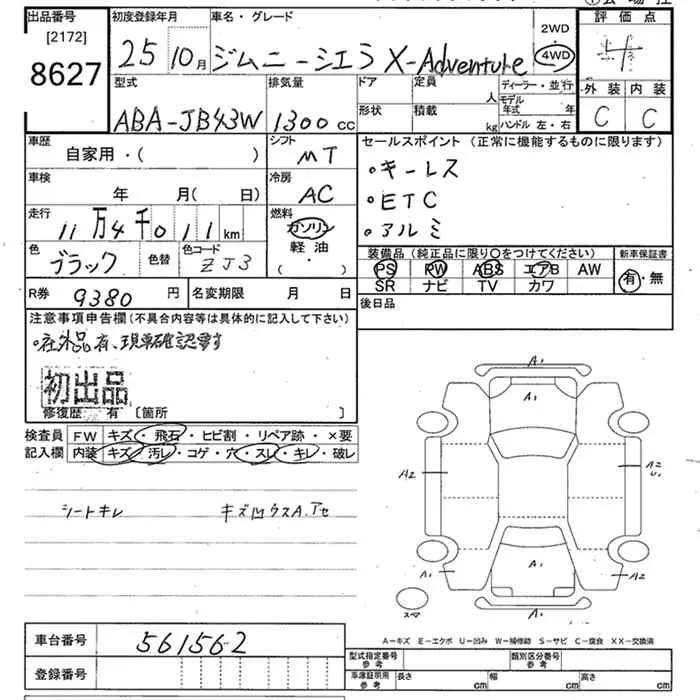 出品番号
[2172]
8627
初度登録年月
25 10月
車名・グレード
ジムニーシエラ X-Adventure
2WD
4WD
評価点
4
外装 内装
C C
型式
ABA-JB43W
排気量
1300cc
ドア
定員
人
ディーラー・並行
モデル年式 年
形状
積載
kg
ハンドル 左・右
車歴
自家用・( )
シフト
MT
セールスポイント (正常に機能するものに限ります)
・キーレス
・ETC
・アルミ
車検
年 月( 日)
冷房
AC
走行
11万4千011km
燃料
ガソリン
軽油
( ・ )
色
ブラック
色替
色コード
ZJ3
装備品(純正品に限り〇をつけてください)
PS PW ABS エアB AW
SR ナビ TV カワ
新車保証書
有・無
R券 9380 円
名変期限 月 日
後日品
注意事項申告欄(不具合内容等は具体的に記入して下さい)
・社外品有、現車確認要す
初出品
修復歴 有 〔箇所 〕
検査員
記入欄
FW キズ・飛石・ヒビ割・リペア跡・×要
内装 キズ・汚レ・コゲ・穴・スレ・キレ・破レ
シートキレ
A1
A1
A2
A2
A1
A1
A1
A1
スマ
車台番号
561562
登録番号
A-キズ E-エクボ U-凹み W-補修跡 S-サビ C-腐食 XX-交換済
型式指定番号
参考
類別区分番号
参考
車庫証明用
参考
長さ cm
幅 cm
高さ cm